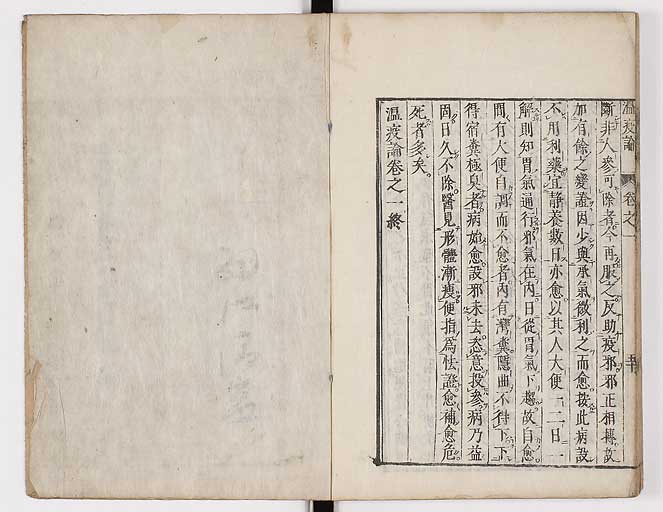 温疫論 卷之一 五十
斷非人參可除者今再服之反助疫邪邪正相搏故
加有餘之變證因少與承氣微利之而愈按此病設
不用利藥宜靜養數日亦愈以其人大便一二日一
解則知胃氣通行邪氣在內日從胃氣下趨故自愈
間有大便自調而不愈者內有灣糞隱曲不得下下
得宿糞極臭者病始愈設邪未去恣意投參病乃益
固日久不除醫見形體漸瘦便指爲怯證愈補愈危
死者多矣
溫疫論卷之一終